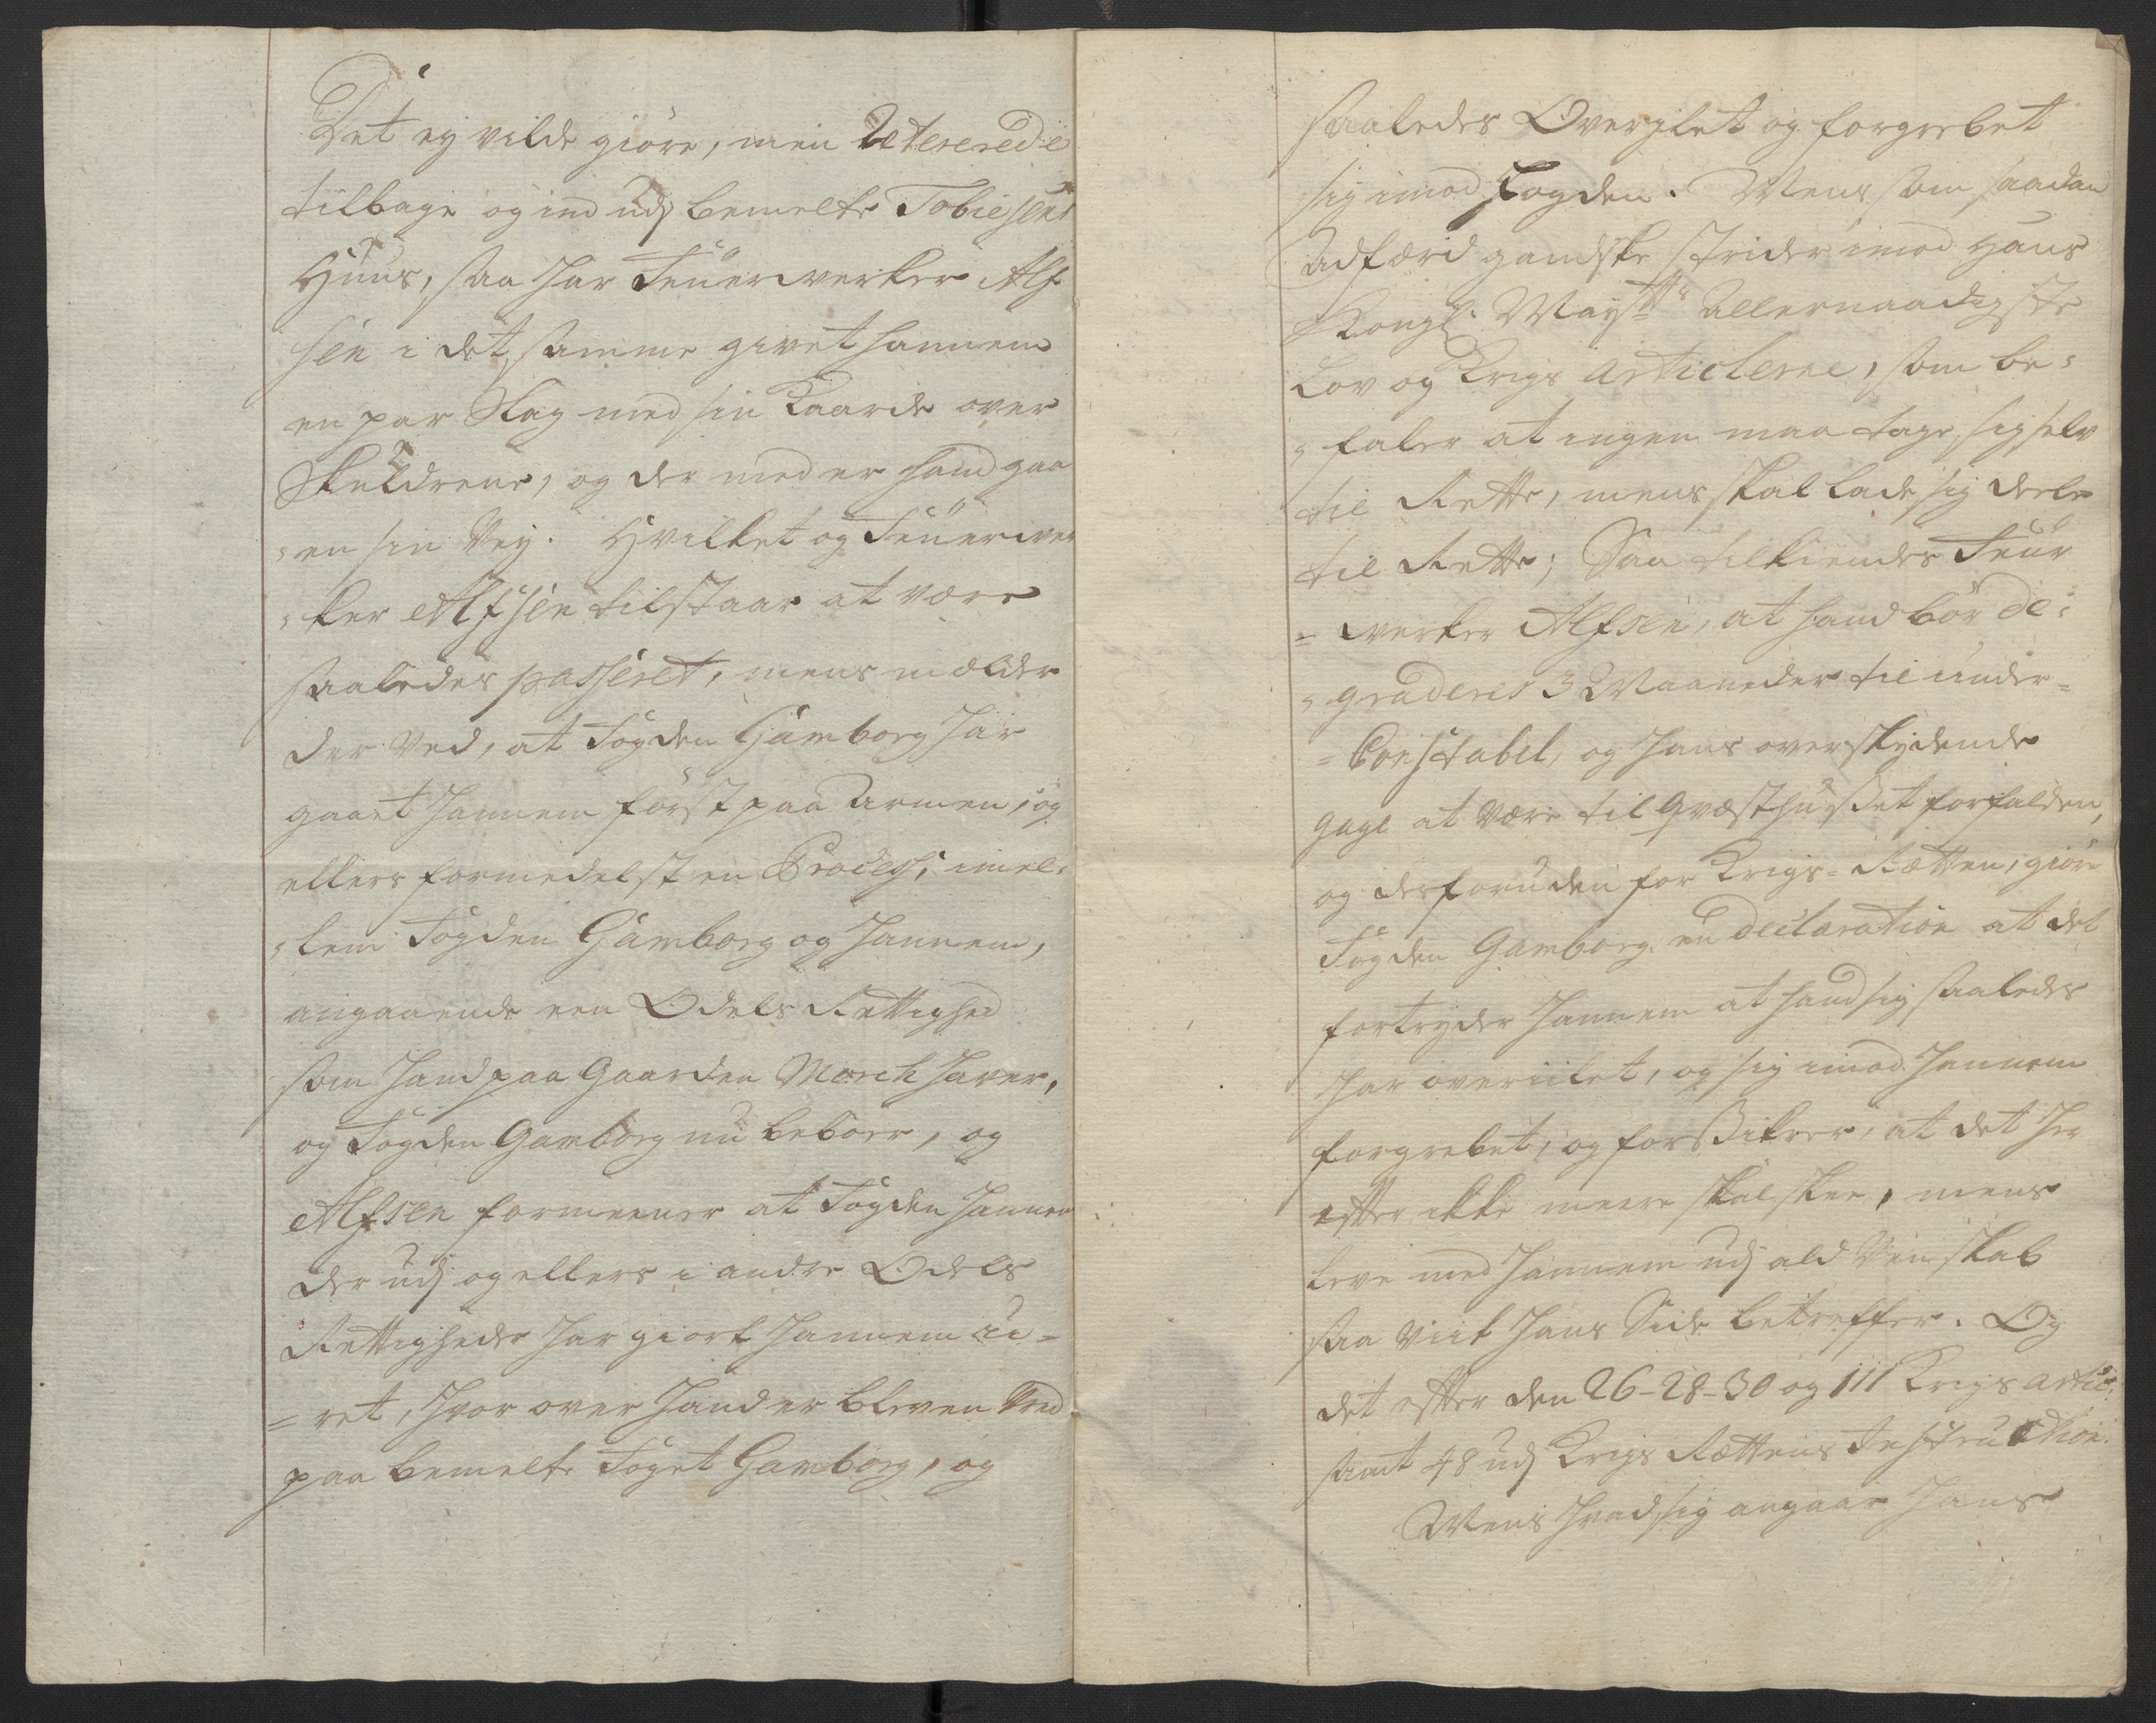 Det ej vilde giöre, men Retererede
tilbage og ind udj bemelte Tobiesens
Huus, saa har Feuerwerker Alf
sen i det samme givet hannem
en par Slag med sin Kaarde over
Skuldrene, og der med er hand gaa
„en sin Vej. Hvilket og Feuerwer
„ker Alfsen tilstaar at være
saaledes passeret, mens melder
der ved, at Fogden Gamborg har
gaaet hannem först paa Armen, og
ellers formedelst en Process, imel„
„lem Fogden Gamborg og hannem,
angaaende een Odels Rettighed
som hand paa Gaarden Morch haver,
og Fogden Gamborg nu beboer, og
Alfsen formeener at Fogden hannem
der udj og ellers i andre Odels
Rettigheder har giort hannem u=
=ret, hvor over hand er bleven Vred
paa bemelte Foget Gamborg, og
saaledes Overjlet og forgrebet
sig imod Fogden. Mens som saadan
Adfærd gandske strider imod Hans
Kongl. Mayst:ts Allernaadigste
Lov og Krigs Articlerne, som be„
„faler at ingen maa tage sig selv
til Rette, mens skal lade sig dele
til Rette; Saa tilkiendes Feur
=werker Alfsen, at hand bör de„
„graderes 3 Maaneder til under=
=Constabel, og hans overskydende
gage at være til Qvæsthuset forfalden,
og desforuden for Krigs=Rætten, giöre
Fogden Gamborg en declaration at det
fortryder hannem at hand sig saaledes
har overiilet, og sig imod hannem
forgrebet, og forsikrer, at det her
efter ikke meere skal skee, mens
leve med hannem udj ald Venskab
saa viit hans Side betreffer. Og
det efter den 26-28-30 og 111 Krigs artic:
samt 48 udj Krigs Rættens Instruction.
Mens hvad sig angaar hans